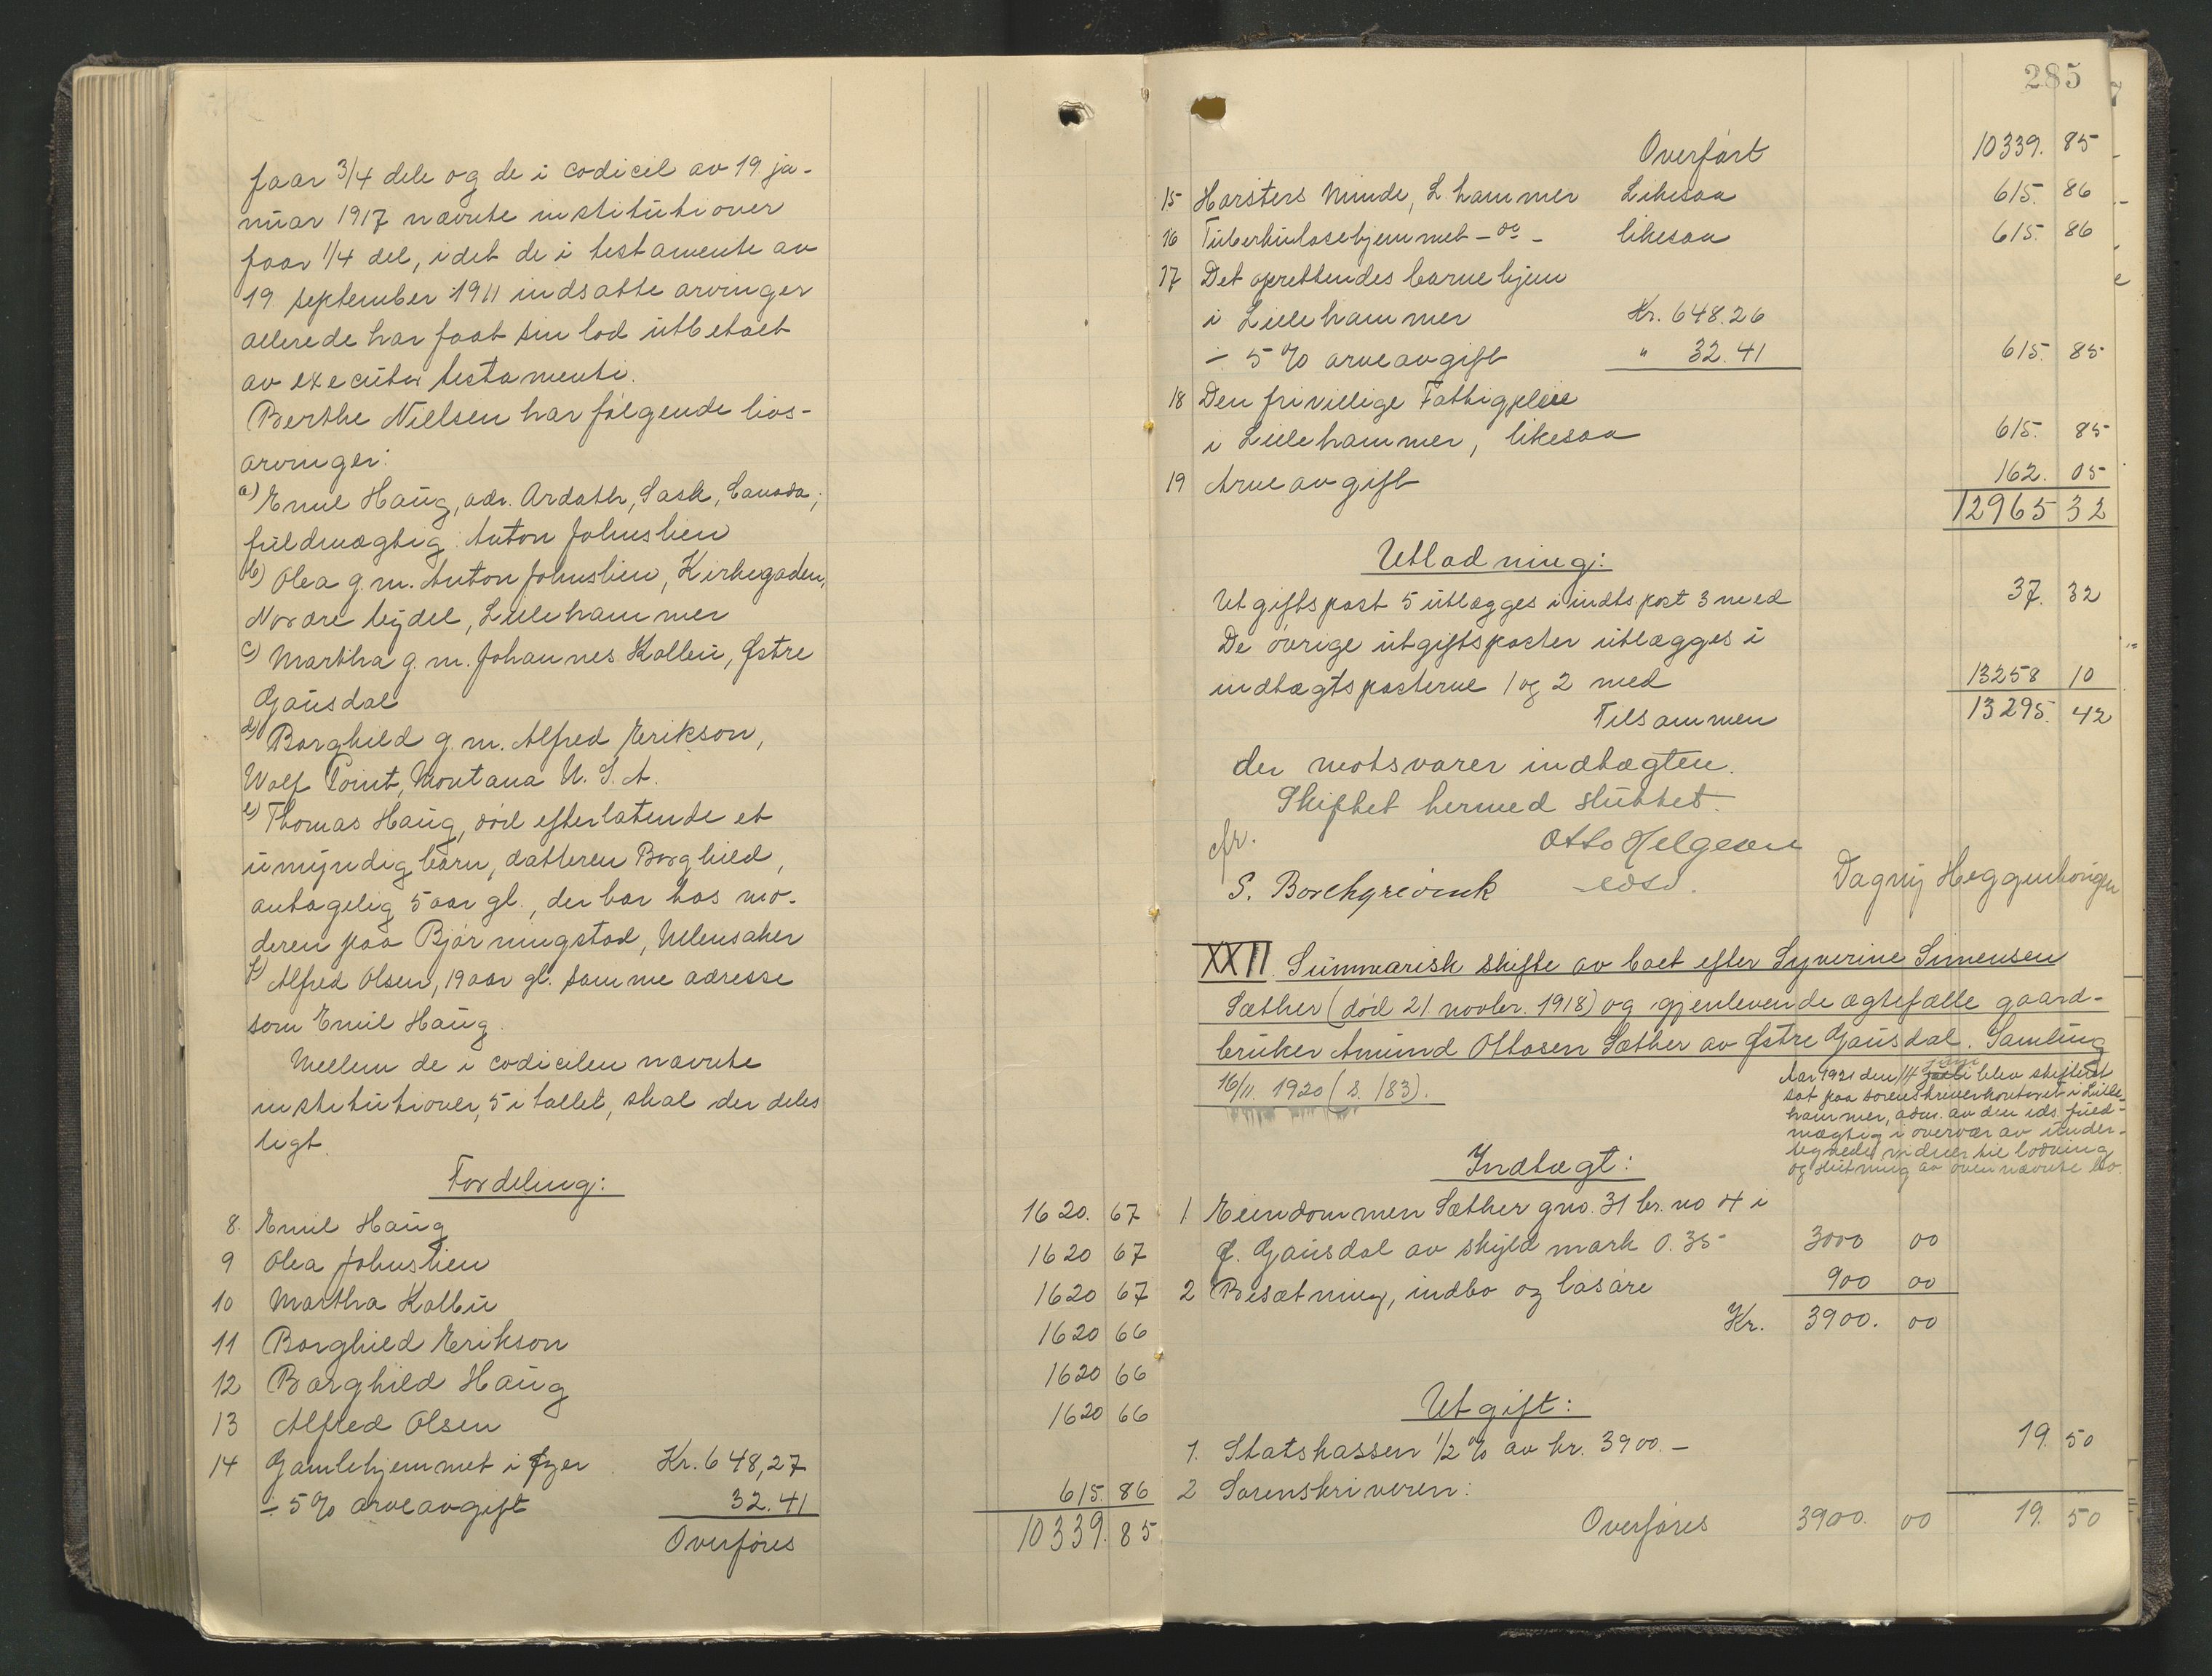 faar 3/4 dele og de i codicil av 19. ja-
nuar 1917 nævnte institutioner
faar 1/4 del, idet de i testamente av
19. september 1911 indsatte arvinger
allerede har faat sin lod utbetalt
av executor testamenti.
Berthe Nielsen har følgende livs-
arvinger:
a) Emil Haug, adr. Ardath, Sask, Canada,
fuldmægtig: Anton Johnslien
b) Olea g. m. Anton Johnslien, Kirkegaden,
Nordre bydel, Lillehammer
c) Martha g. m. Johannes Kalbu, Østre
Gausdal
d) Borghild g. m. Alfred Erikson,
Wolf Point, Montana U. S. A.
e) Thomas Haug, död efterlatende et
umyndig barn, datteren Borghild,
antagelig 5 aar gl., der bor hos mo-
deren paa Bjørningstad, Ullensaker
f) Alfred Olsen, 19 aar gl. samme adresse
som Emil Haug.
Mellem de i codicilen nævnte
institutioner, 5 i tallet, skal der deles
ligt.
Fordeling:
8. Emil Haug 1620. 67
9 Olea Johnslien 1620 67
10 Martha Kalbu 1620 67
11 Borghild Erikson 1620 66
12 Borghild Haug 1620 66
13 Alfred Olsen 1620 66
14 Gamlehjemmet i Øyer Kr. 648,27
÷ 5% arveavgift 32.41 615. 86
Overføres 10339. 85
285
Overført 10339. 85
15 Harsters Minde, L.hammer Likesaa 615. 86
16 Tuberkulosehjemmet - do - likesaa 615. 86
17 Det oprettendes barnehjem
i Lillehammer Kr. 648.26
÷ 5% arveavgift " 32.41 615. 85
18 Den frivillige Fattigpleie
i Lillehammer, likesaa 615. 85
19 Arveavgift 162. 05
12965 32
Utlodning:
Utgiftspost 5 utlægges i indts post 3 med 37. 32
De øvrige utgiftsposter utlægges i
indtægtsposterne 1 og 2 med 13258 10
Tilsammen 13295. 42
der motsvarer indtægten.
Skiftet hermed sluttet.
Otto Helgesen
S. Borchgrevink edsv. Dagny Heggenhougen
XXII. Summarisk skifte av boet efter Syverine Simensen
Sæther (död 21. novbr. 1918) og gjenlevende ægtefælle gaard-
bruker Amund Ottosen Sæther av Østre Gausdal. Samling
16/11. 1920 (s. 183).
juni
Aar 1921 den 14 juli blev skifteret
sat paa sorenskriverkontoret i Lille-
hammer, adm. av den eds. fuld-
mægtig i overvær av under-
tegnede vidner til lodning
og slutning av ovennævnte bo.
Indtægt:
1. Eiendommen Sæther gno. 31 br. no 4 i
Ø. Gausdal av skyld mark 0.35 3000 00
2 Besætning, indbo og løsøre 900 00
Kr. 3900. 00
Utgift:
1. Statskassen 1/2% av kr. 3900.- 19. 50
2 Sorenskriveren:
Overføres 3900. 00 19. 50